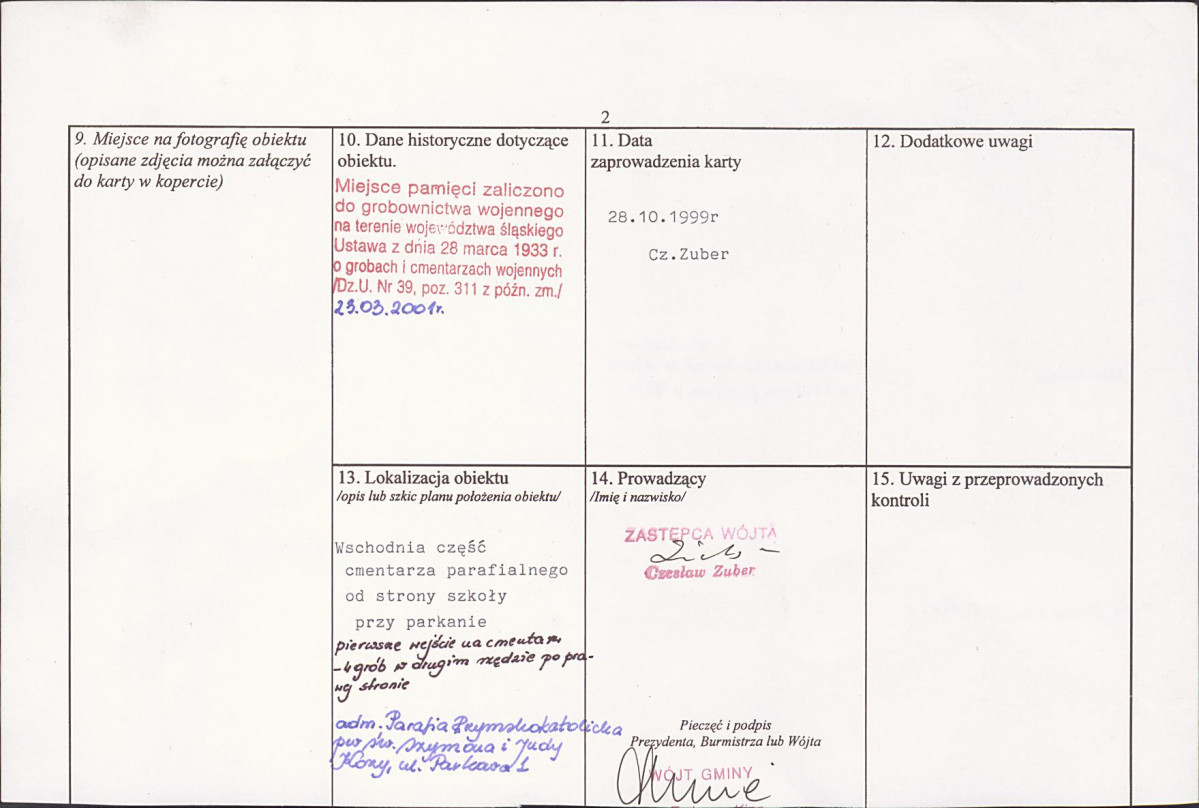 2
9. Miejsce na fotografię obiektu
(opisane zdjęcia można załączyć
do karty w kopercie)
10. Dane historyczne dotyczące
obiektu.
Miejsce pamięci zaliczono
do grobownictwa wojennego
na terenie województwa śląskiego
Ustawa z dnia 28 marca 1933 r.
o grobach i cmentarzach wojennych
/Dz.U. Nr 39, poz. 311 z późn. zm./
23.03.2001r.
11. Data
zaprowadzenia karty
28.10.1999r
Cz.Zuber
12. Dodatkowe uwagi
13. Lokalizacja obiektu
/opis lub szkic planu położenia obiektu/
Wschodnia część
cmentarza parafialnego
od strony szkoły
przy parkanie
pierwsze wejście na cmentarz
- 4 grób w drugim rzędzie po pra-
wej stronie
adm. Parafia Rzymskokatolicka
pw św. Szymona i Judy
Kozy, ul. Parkowa 1
14. Prowadzący
/Imię i nazwisko/
ZASTĘPCA WÓJTA
Czesław Zuber
Pieczęć i podpis
Prezydenta, Burmistrza lub Wójta
WÓJT GMINY
15. Uwagi z przeprowadzonych
kontroli